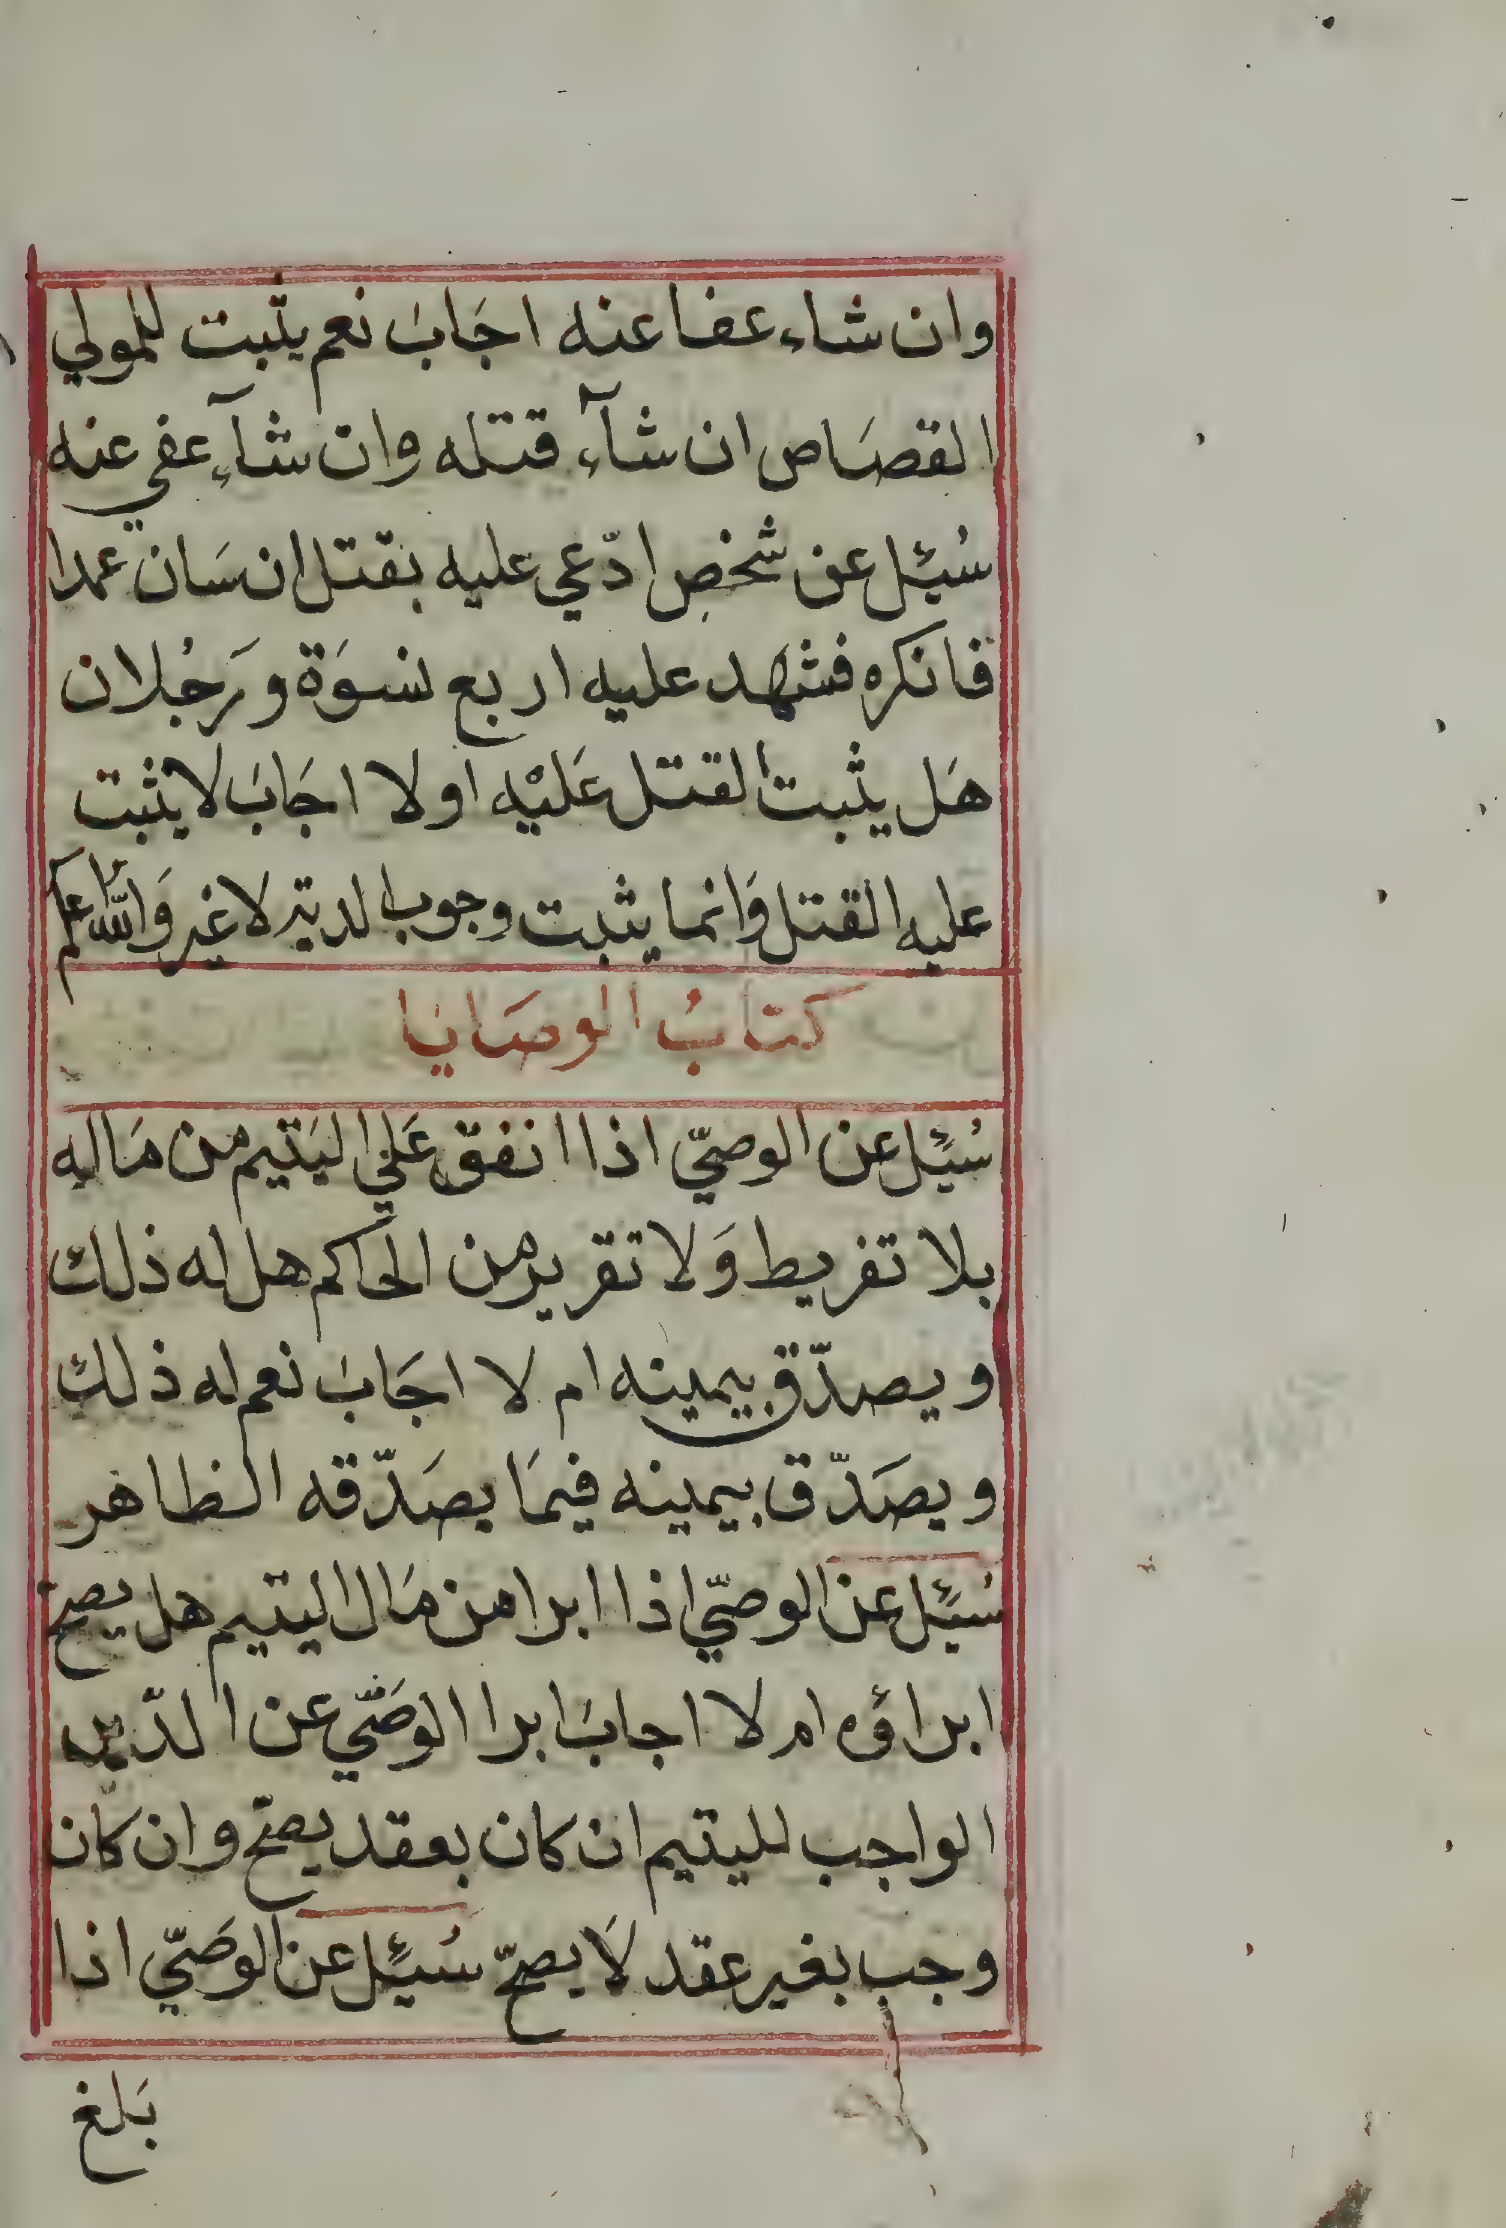 وان شاء عفا عنه اجَابَ نعم يثبت للمولي
القصَاص ان شآء قتله وان شآء عفي عنه
سُئِل عن شخص ادّعي عليه بقتل ان سَان عمدا
فانكره فشهد عليه اربع نسوَة ورَجُلان
هَل يثبت القتل عَليْه اولا اجَابَ لا يثبت
عليه القتل وَانما يثبت وجوب الدية لا غير وَالله اعلم
كتابُ الوصَايا
سُئِل عن الوصيّ اذا انفق عَلي اليَتيم من مَاله
بلا تفريط وَلا تقرير من الحَاكم هل له ذلك
ويصدّق بيمينه ام لا اجَابَ نعم له ذلك
ويصَدّق بيمينه فيمَا يصَدّقه الظاهر
سُئِل عن الوصيّ اذا ابرا من مَال اليتيم هل يصحّ
ابراؤه ام لا اجابَ ابرا الوصَيّ عن الدّين
الواجب لليتيم ان كان بعقد يصحّ وان كَان
وجب بغير عقد لَا يصحّ سُئِل عن الوصَيّ اذا
بَلغ